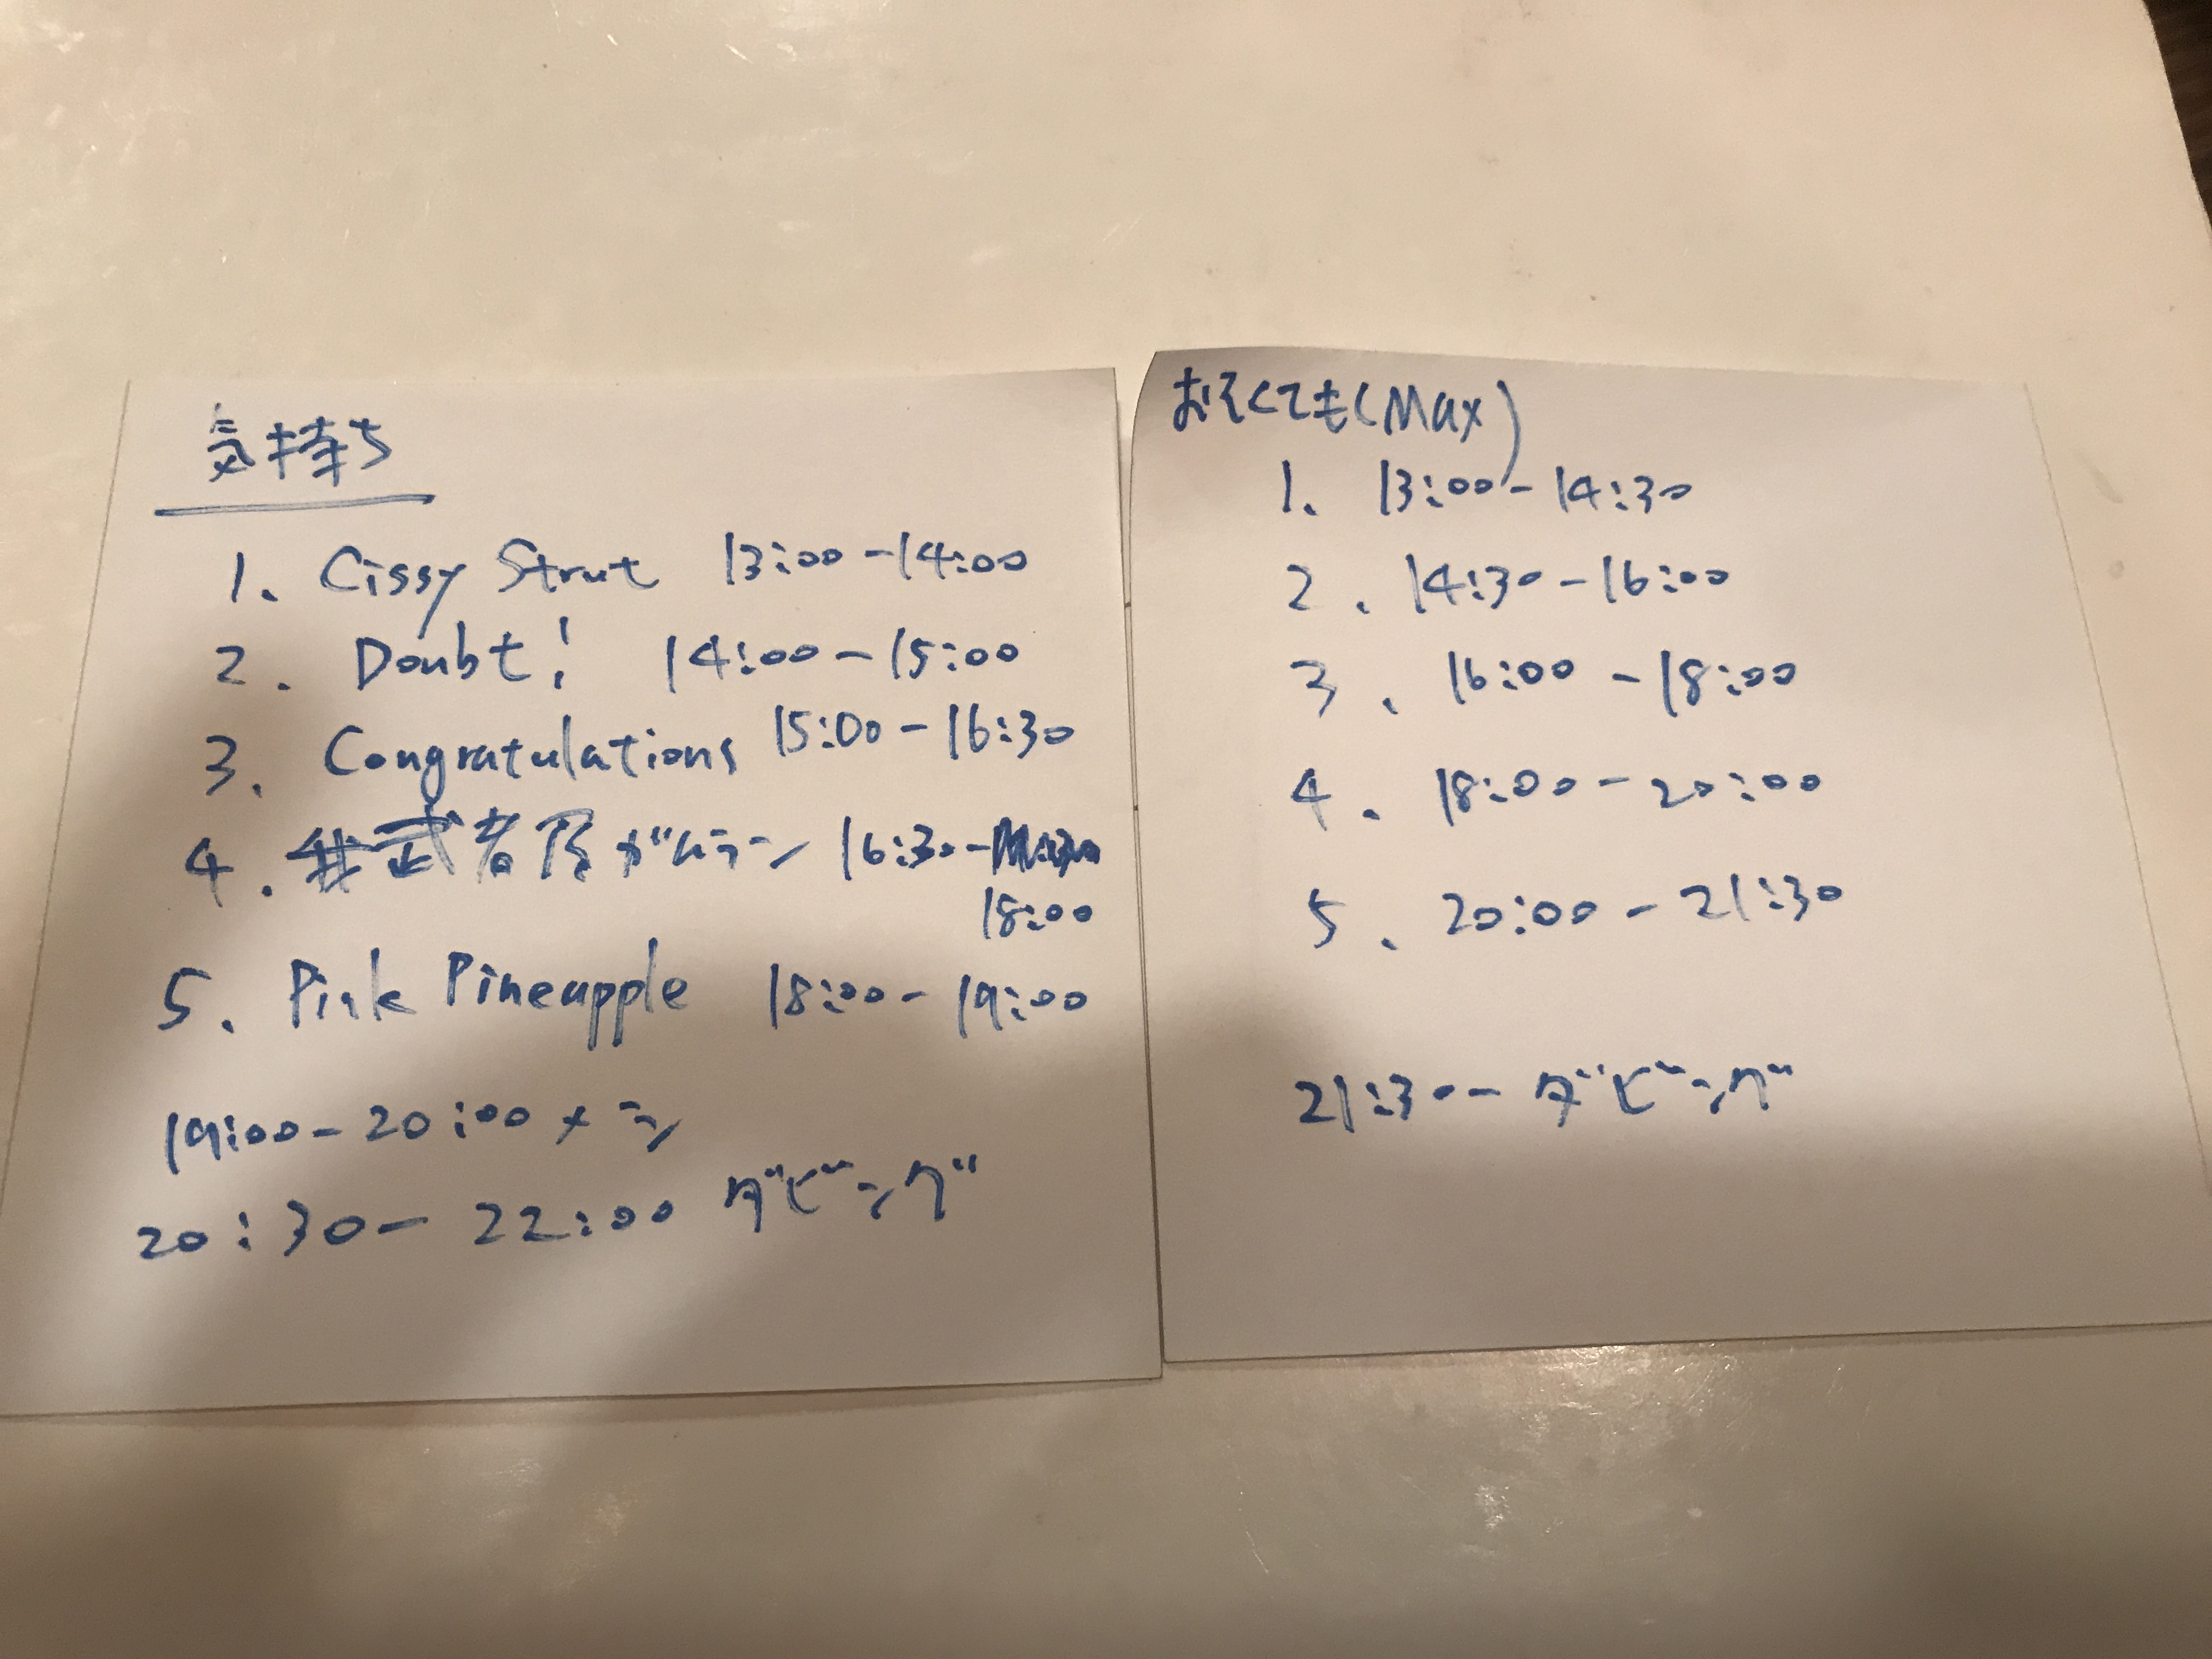 気持ち
1. Cissy Strut 13:00-14:00
2. Doubt! 14:00-15:00
3. Congratulations 15:00-16:30
4. 武者 16:30-
18:00
5. Pink Pineapple 18:00-19:00
19:00-20:00 メシ
20:30-22:00 ダビング
おそくても(Max)
1. 13:00-14:30
2. 14:30-16:00
3. 16:00-18:00
4. 18:00-20:00
5. 20:00-21:30
21:30- ダビング